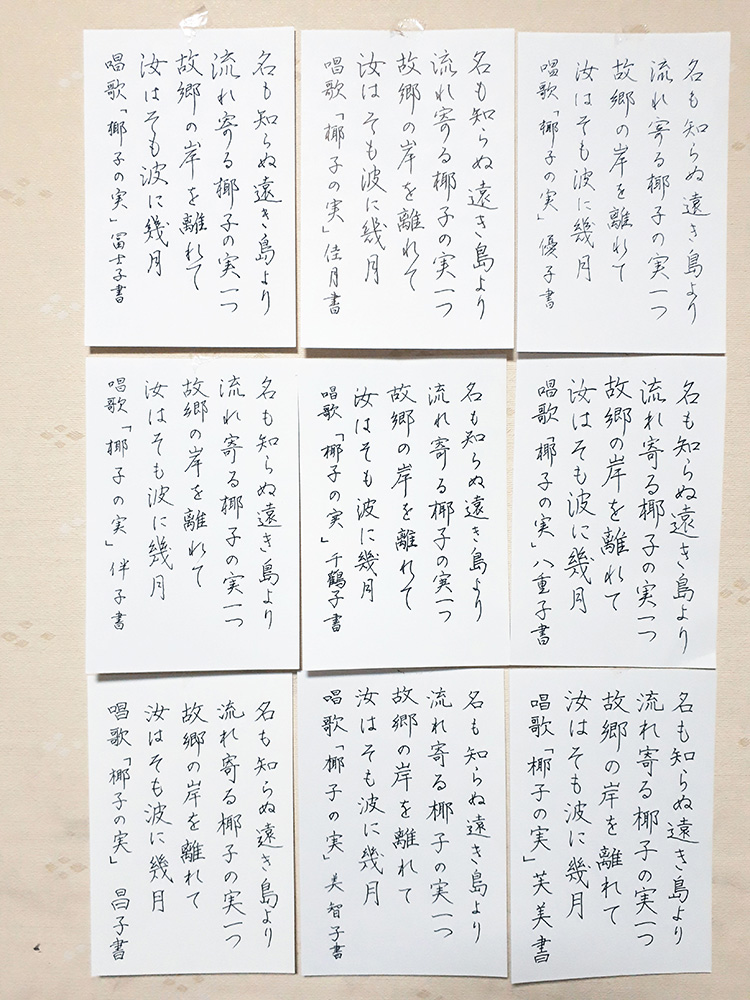 名も知らぬ遠き島より
流れ寄る椰子の実一つ
故郷の岸を離れて
汝はそも波に幾月
唱歌「椰子の実」優子書
名も知らぬ遠き島より
流れ寄る椰子の実一つ
故郷の岸を離れて
汝はそも波に幾月
唱歌「椰子の実」佳月書
名も知らぬ遠き島より
流れ寄る椰子の実一つ
故郷の岸を離れて
汝はそも波に幾月
唱歌「椰子の実」冨士子書
名も知らぬ遠き島より
流れ寄る椰子の実一つ
故郷の岸を離れて
汝はそも波に幾月
唱歌「椰子の実」八重子書
名も知らぬ遠き島より
流れ寄る椰子の実一つ
故郷の岸を離れて
汝はそも波に幾月
唱歌「椰子の実」千鶴子書
名も知らぬ遠き島より
流れ寄る椰子の実一つ
故郷の岸を離れて
汝はそも波に幾月
唱歌「椰子の実」伴子書
名も知らぬ遠き島より
流れ寄る椰子の実一つ
故郷の岸を離れて
汝はそも波に幾月
唱歌「椰子の実」芙美書
名も知らぬ遠き島より
流れ寄る椰子の実一つ
故郷の岸を離れて
汝はそも波に幾月
唱歌「椰子の実」美智子書
名も知らぬ遠き島より
流れ寄る椰子の実一つ
故郷の岸を離れて
汝はそも波に幾月
唱歌「椰子の実」昌子書